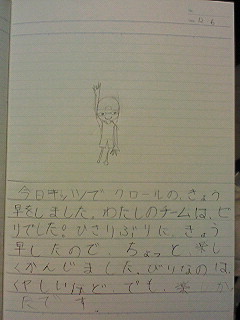 今日キッツでクロールの、きょう
早をしました。わたしのチームは、ビ
リでした。ひさりぶりに、きょう
早したので、ちょっと楽し
くかんじました。びりなのは、
くやしいけど、でも、楽しか
たです。